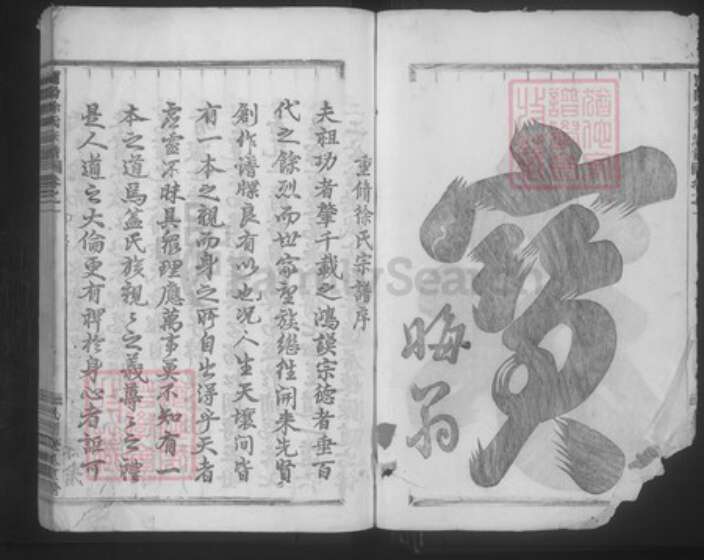 寳
晦翁
重脩徐氏宗譜序
夫祖功者肇千載之鴻謨宗德者垂百
代之餘烈而世家聖族繼往開来先賢
創作譜牒良有以也况人生天壤间皆
有一本之親而身之所自出得乎天者
虚靈不昧具衆理應萬事莫不知有一
本之道焉盖氏族親〻之義尊〻之禮
是人道之大倫更有裨於身心者詎可
FamilySearch